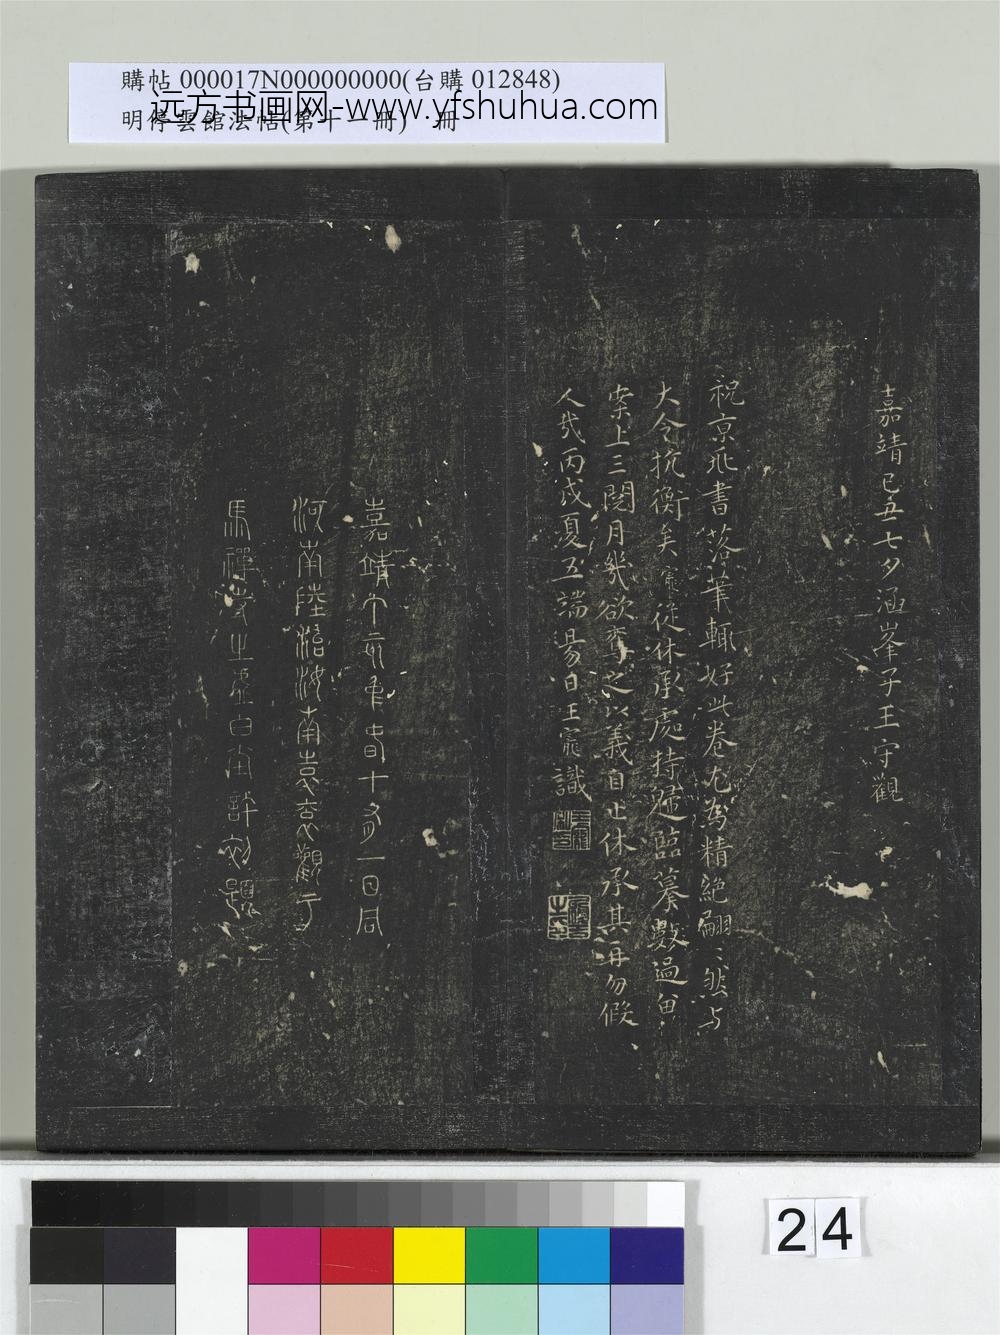 購帖 000017N000000000(台購 012848)
明停雲館法帖(第十一冊) 冊
远方书画网-www.yfshuhua.com
嘉靖己丑七夕涵峯子王守觀
祝京兆書落筆輒好此卷尤為精絕翩〻然与
大令抗衡矣寵從休承處持歸臨摹數過留
案上三閱月幾欲奪之以義自止休承其再勿假
人哉丙戌夏五端陽日王寵識
嘉靖 春十又一日同
河南陸治汝南袁袠觀于
馬 之虛白 許初題
24